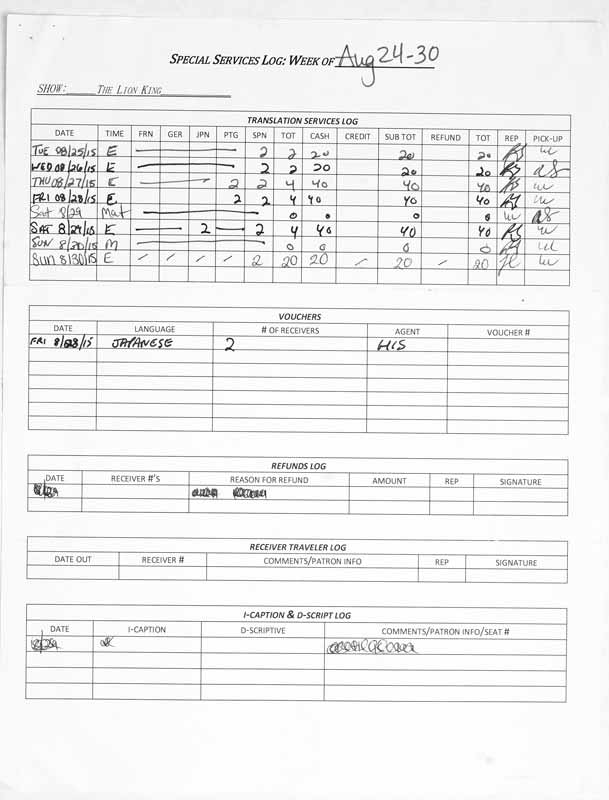 SPECIAL SERVICES LOG: WEEK OF Aug 24-30
SHOW: THE LION KING
TRANSLATION SERVICES LOG
DATE TIME FRN GER JPN PTG SPN TOT CASH CREDIT SUB TOT REFUND TOT REP PICK-UP
TUE 08/25/15 E 2 2 20 20 20
WED 08/26/15 E 2 2 20 20 20
THU 08/27/15 E 2 2 4 40 40 40
FRI 08/28/15 E 2 2 4 40 40 40
Sat 8/29 Mat 0 0 0 0
SAT 8/29/15 E 2 2 4 40 40 40
SUN 8/30/15 M 0 0 0 0
Sun 8/30/15 E 2 20 20 20 20
VOUCHERS
DATE LANGUAGE # OF RECEIVERS AGENT VOUCHER #
FRI 8/28/15 JAPANESE 2 HIS
REFUNDS LOG
DATE RECEIVER #'S REASON FOR REFUND AMOUNT REP SIGNATURE
RECEIVER TRAVELER LOG
DATE OUT RECEIVER # COMMENTS/PATRON INFO REP SIGNATURE
I-CAPTION & D-SCRIPT LOG
DATE I-CAPTION D-SCRIPTIVE COMMENTS/PATRON INFO/SEAT #